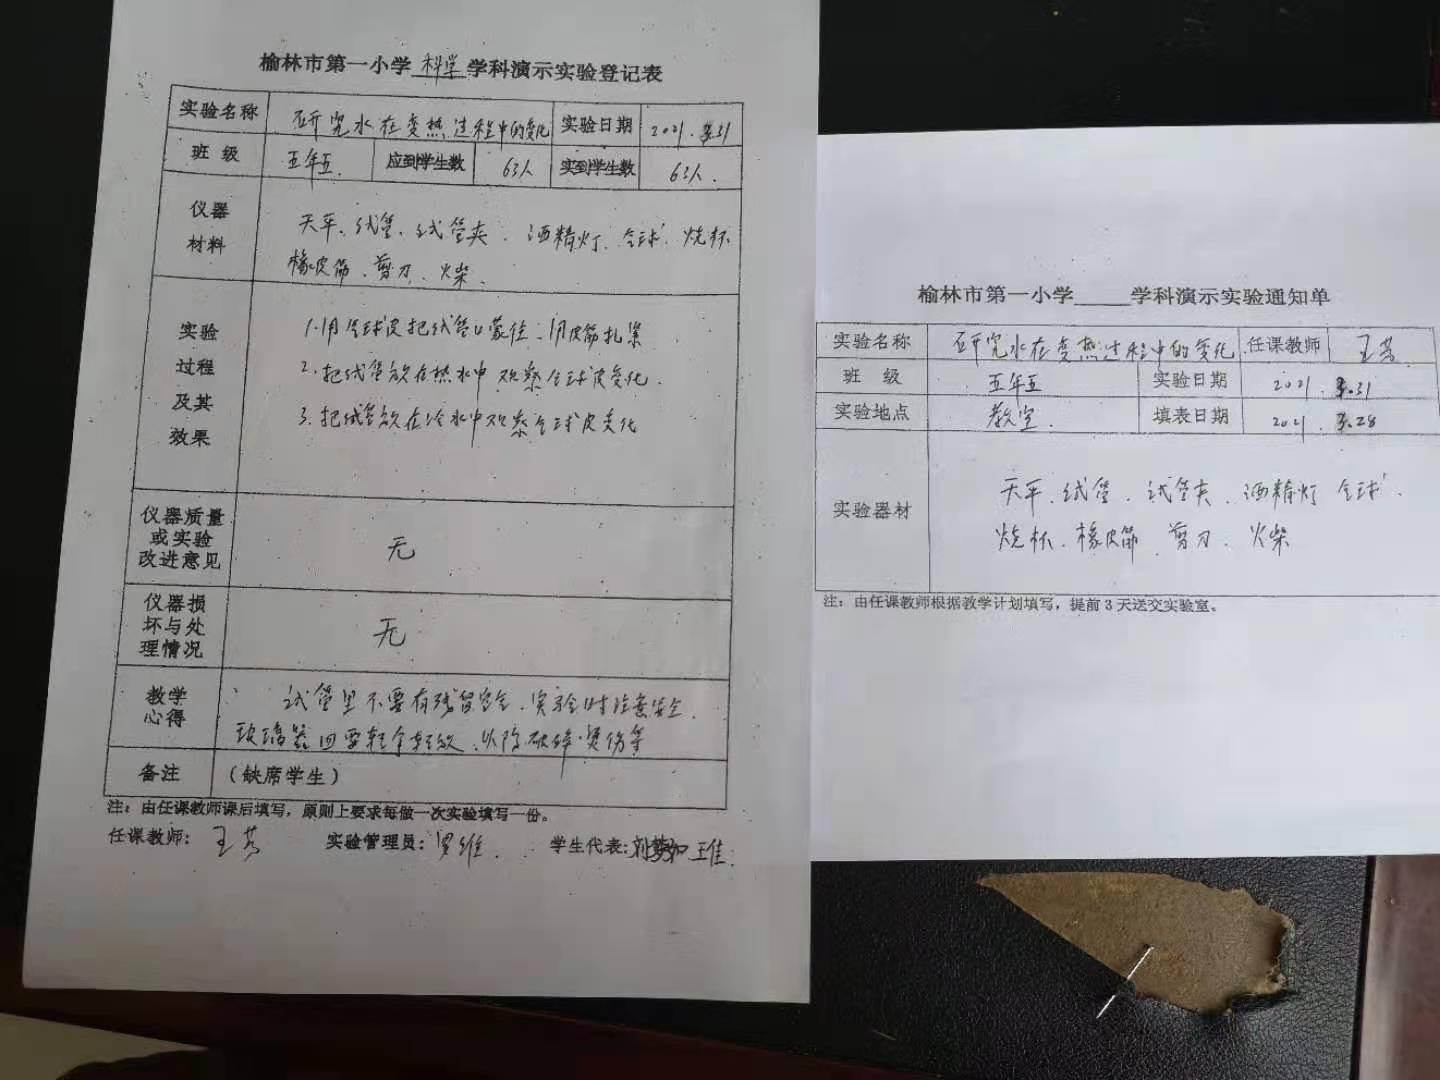 榆林市第一小学 科学 学科演示实验登记表
实验名称 研究水在变热过程中的变化 实验日期 2021.3.31
班 级 五年五. 应到学生数 63人 实到学生数 63人.
仪器 天平、试管、试管夹、酒精灯、气球、烧杯
材料 橡皮筋、剪刀、火柴.
实验 1.用气球皮把试管口蒙住、用皮筋扎紧
过程 2.把试管放在热水中观察气球皮变化.
及其 3.把试管放在冷水中观察气球皮变化
效果
仪器质量
或实验 无
改进意见
仪器损
坏与处 无
理情况
教学 试管里不要有残留空气.实验时注意安全.
心得 玻璃器皿要轻拿轻放、以防破碎、烫伤等
备注 (缺席学生)
注：由任课教师课后填写，原则上要求每做一次实验填写一份。
任课教师： 王芳 实验管理员： 罗维. 学生代表： 王佳.
榆林市第一小学____学科演示实验通知单
实验名称 研究水在变热过程中的变化 任课教师 王芳
班 级 五年五 实验日期 2021.3.31
实验地点 教室. 填表日期 2021.3.28
天平、试管、试管夹、酒精灯 气球、
实验器材 烧杯、橡皮筋、剪刀、火柴
注：由任课教师根据教学计划填写，提前3天送交实验室。